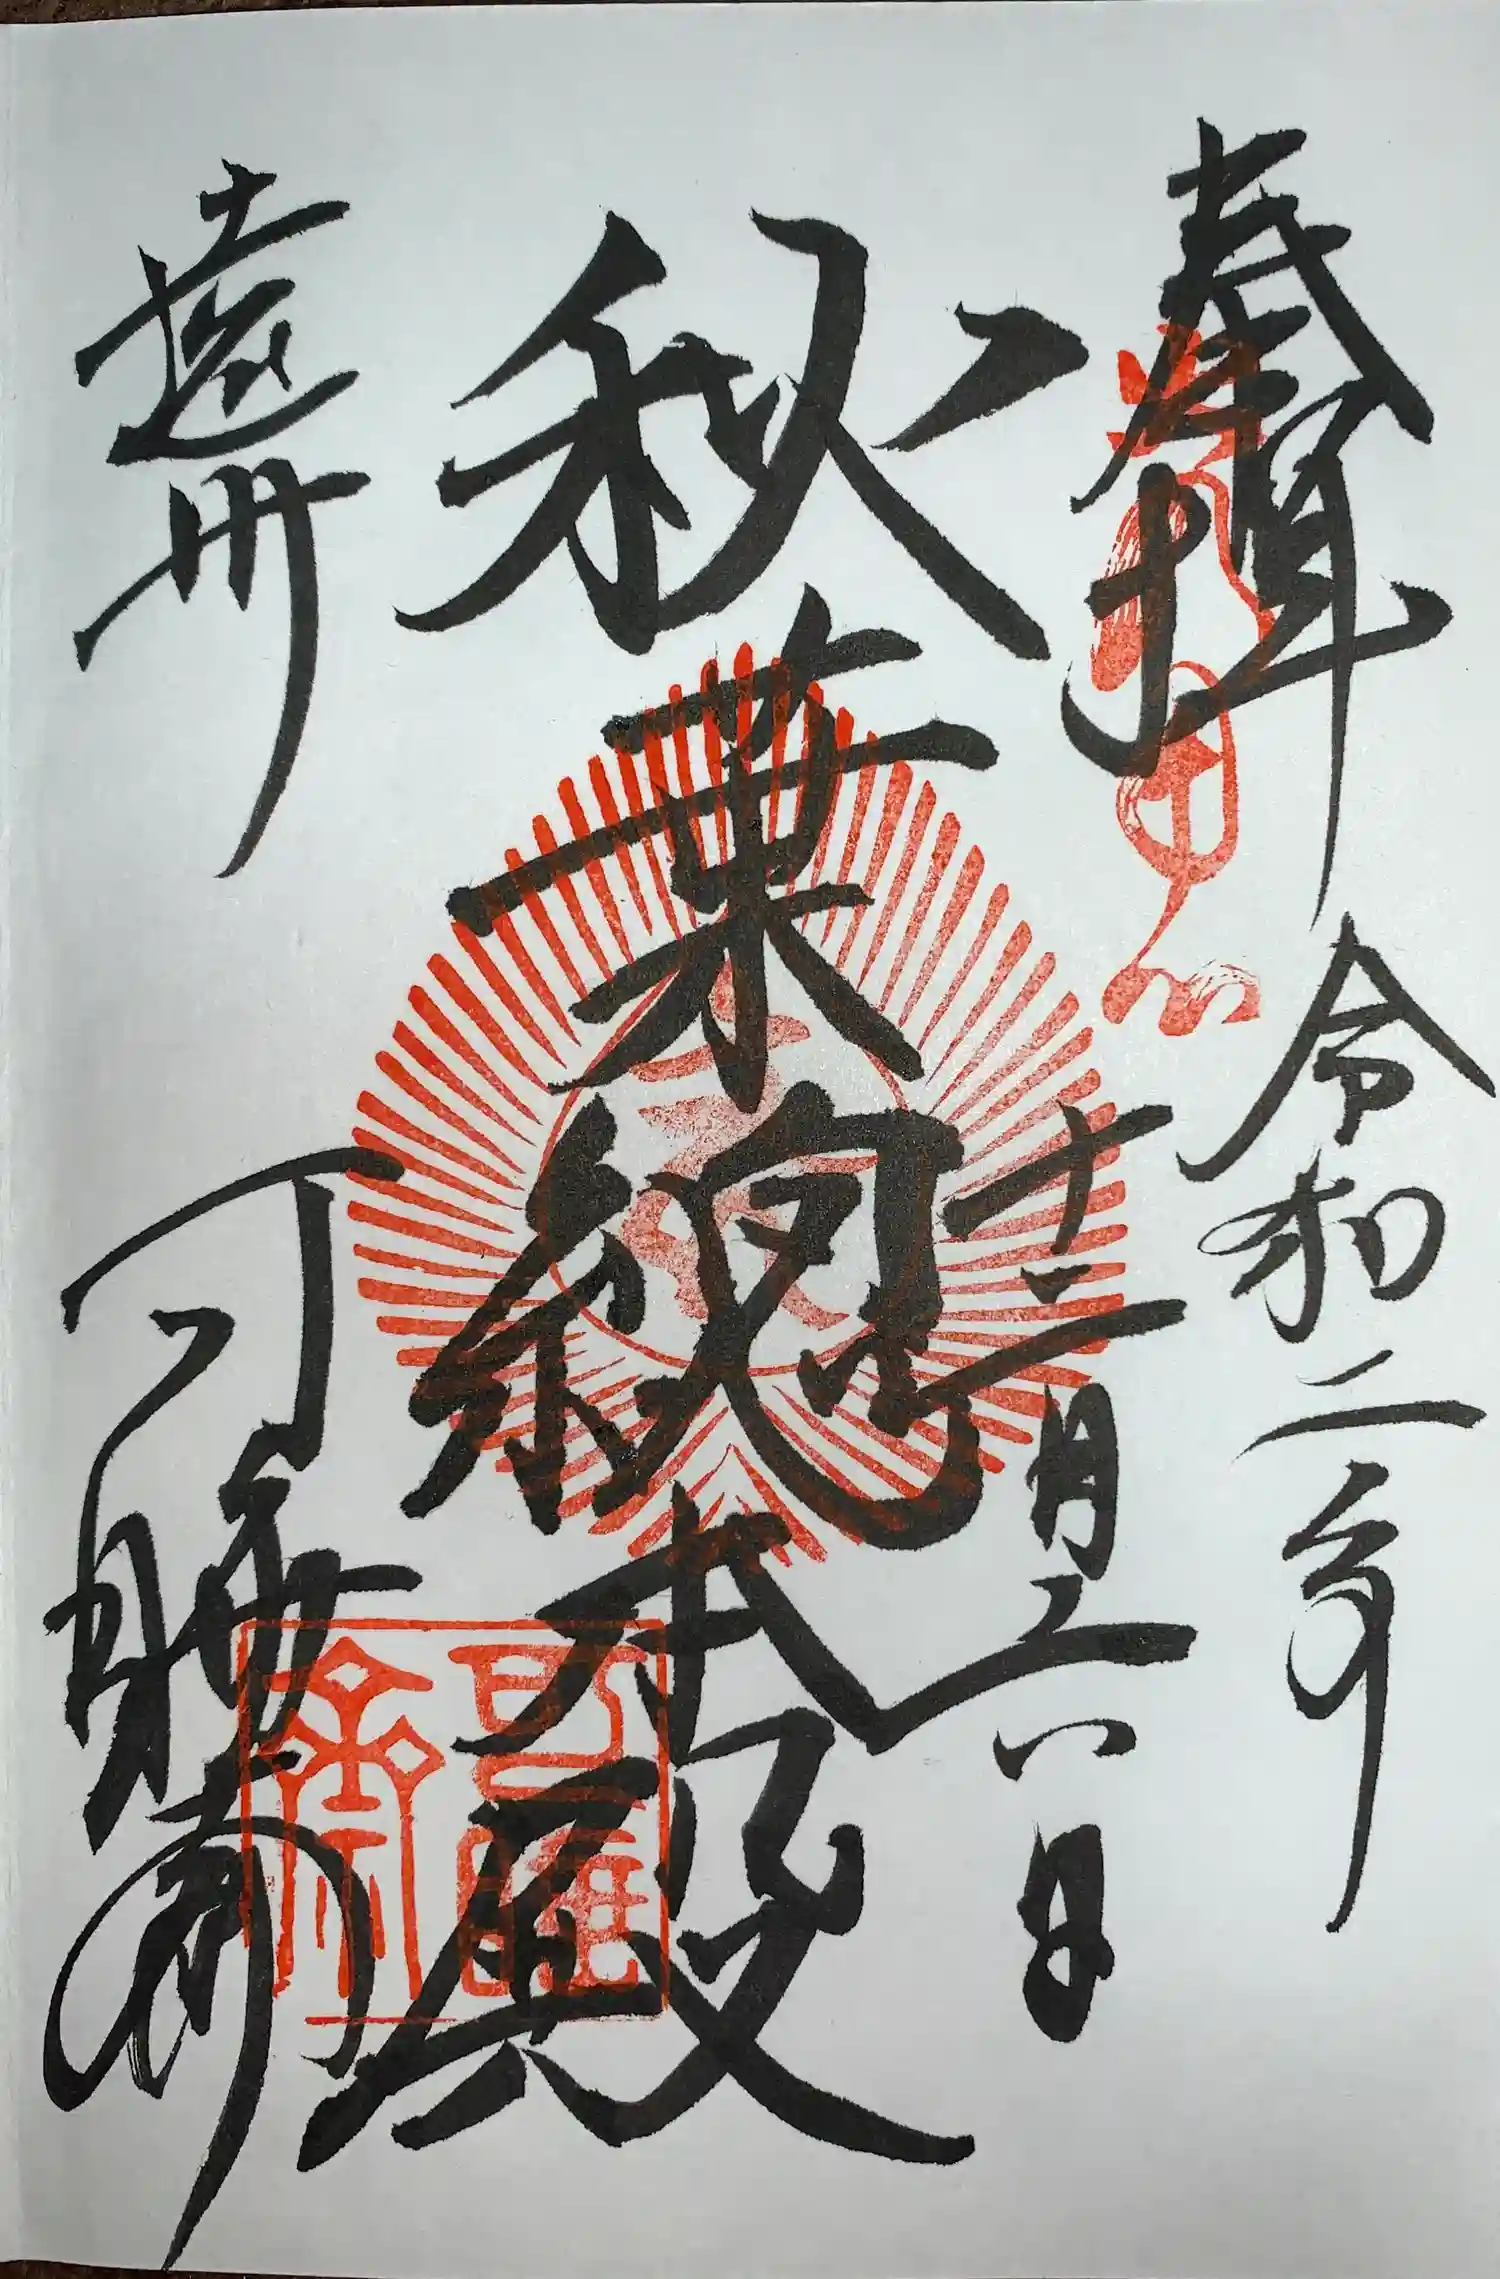 奉拝
令和二年
十二月二八日
秋葉総本殿
遠州
可睡斎
可睡斎